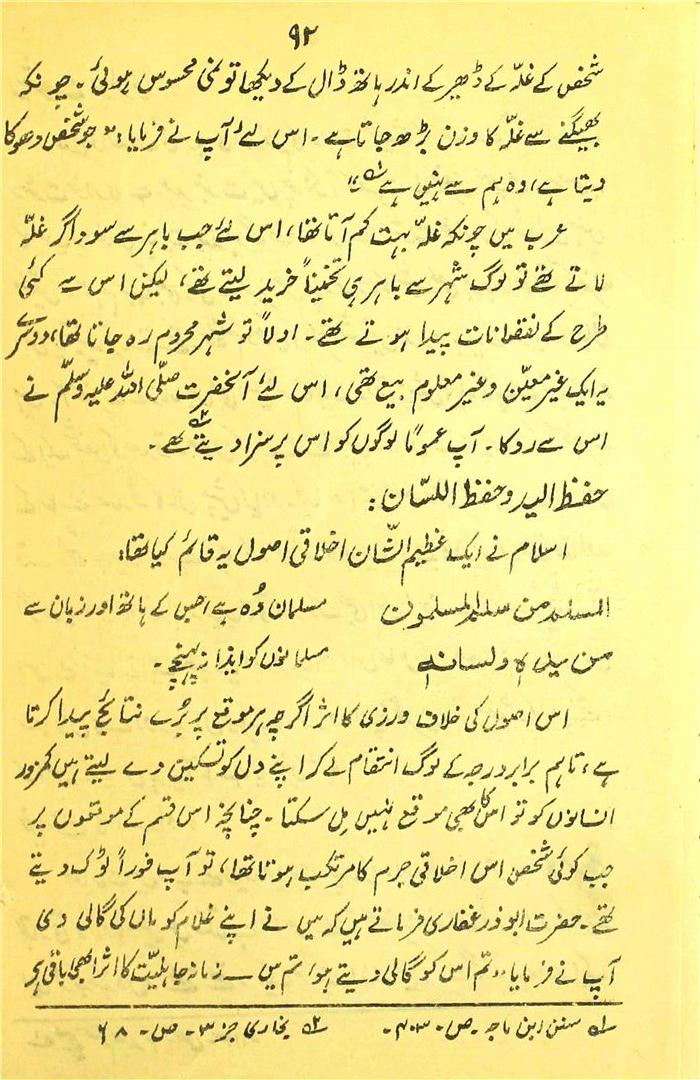 ۹۲
شخص کے غلّہ کے ڈھیر کے اندر ہاتھ ڈال کے دیکھا تو نمی محسوس ہوئی۔ چونکہ
بھیگنے سے غلّہ کا وزن بڑھ جاتا ہے۔ اس لئے آپ نے فرمایا: "جو شخص دھوکا
دیتا ہے، وہ ہم سے نہیں ہے ۱؎"
عرب میں چونکہ غلّہ بہت کم آتا تھا، اس لئے جب باہر سے سوداگر غلّہ
لاتے تھے تو لوگ شہر سے باہر ہی تخمیناً خرید لیتے تھے، لیکن اس سے کئی
طرح کے نقصانات پیدا ہوتے تھے۔ اولاً تو شہر محروم رہ جاتا تھا، دوسرے
یہ ایک غیر معیّن و غیر معلوم بیع تھی، اس لئے آنحضرت صلّی اللہ علیہ وسلّم نے
اس سے روکا۔ آپ عموماً لوگوں کو اس پر سزا دیتے ۲؎ تھے۔
حفظ الید و حفظ اللسّان:
اسلام نے ایک عظیم الشّان اخلاقی اصول یہ قائم کیا تھا:
المسلم من سلم المسلمون مسلمان وُہ ہے، جس کے ہاتھ اور زبان سے
من یدہ ولسانہ مسلمانوں کو ایذا نہ پہنچے۔
اس اصول کی خلاف ورزی کا اثر اگرچہ ہر موقع پر بُرے نتائج پیدا کرتا
ہے، تاہم برابر درجہ کے لوگ انتقام لے کر اپنے دل کو تسکین دے لیتے ہیں کمزور
انسانوں کو تو اس کا بھی موقع نہیں مل سکتا۔ چنانچہ اس قسم کے موقعوں پر
جب کوئی شخص اس اخلاقی جرم کا مرتکب ہوتا تھا، تو آپ فوراً ٹوک دیتے
تھے۔ حضرت ابوذر غفاری فرماتے ہیں کہ میں نے اپنے غلام کو ماں کی گالی دی
آپ نے فرمایا "تم اس کو گالی دیتے ہو، تم میں زمانہ جاہلیّت کا اثر ابھی باقی ہے
۱؎ سنن ابن ماجہ۔ ص۔ ۴۰۳۔ ۲؎ بخاری جز ۳۔ ص۔ ۶۸